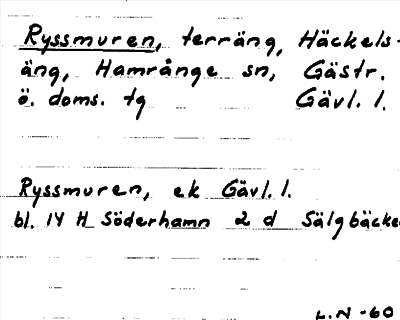 Ryssmuren, terräng, Häckels-
äng, Hamrånge sn, Gästr.
ö. doms. tg Gävl. l.
Ryssmuren, ek Gävl. l.
bl. 14 H Söderhamn 2 d Sälgbäcke
L.N -60